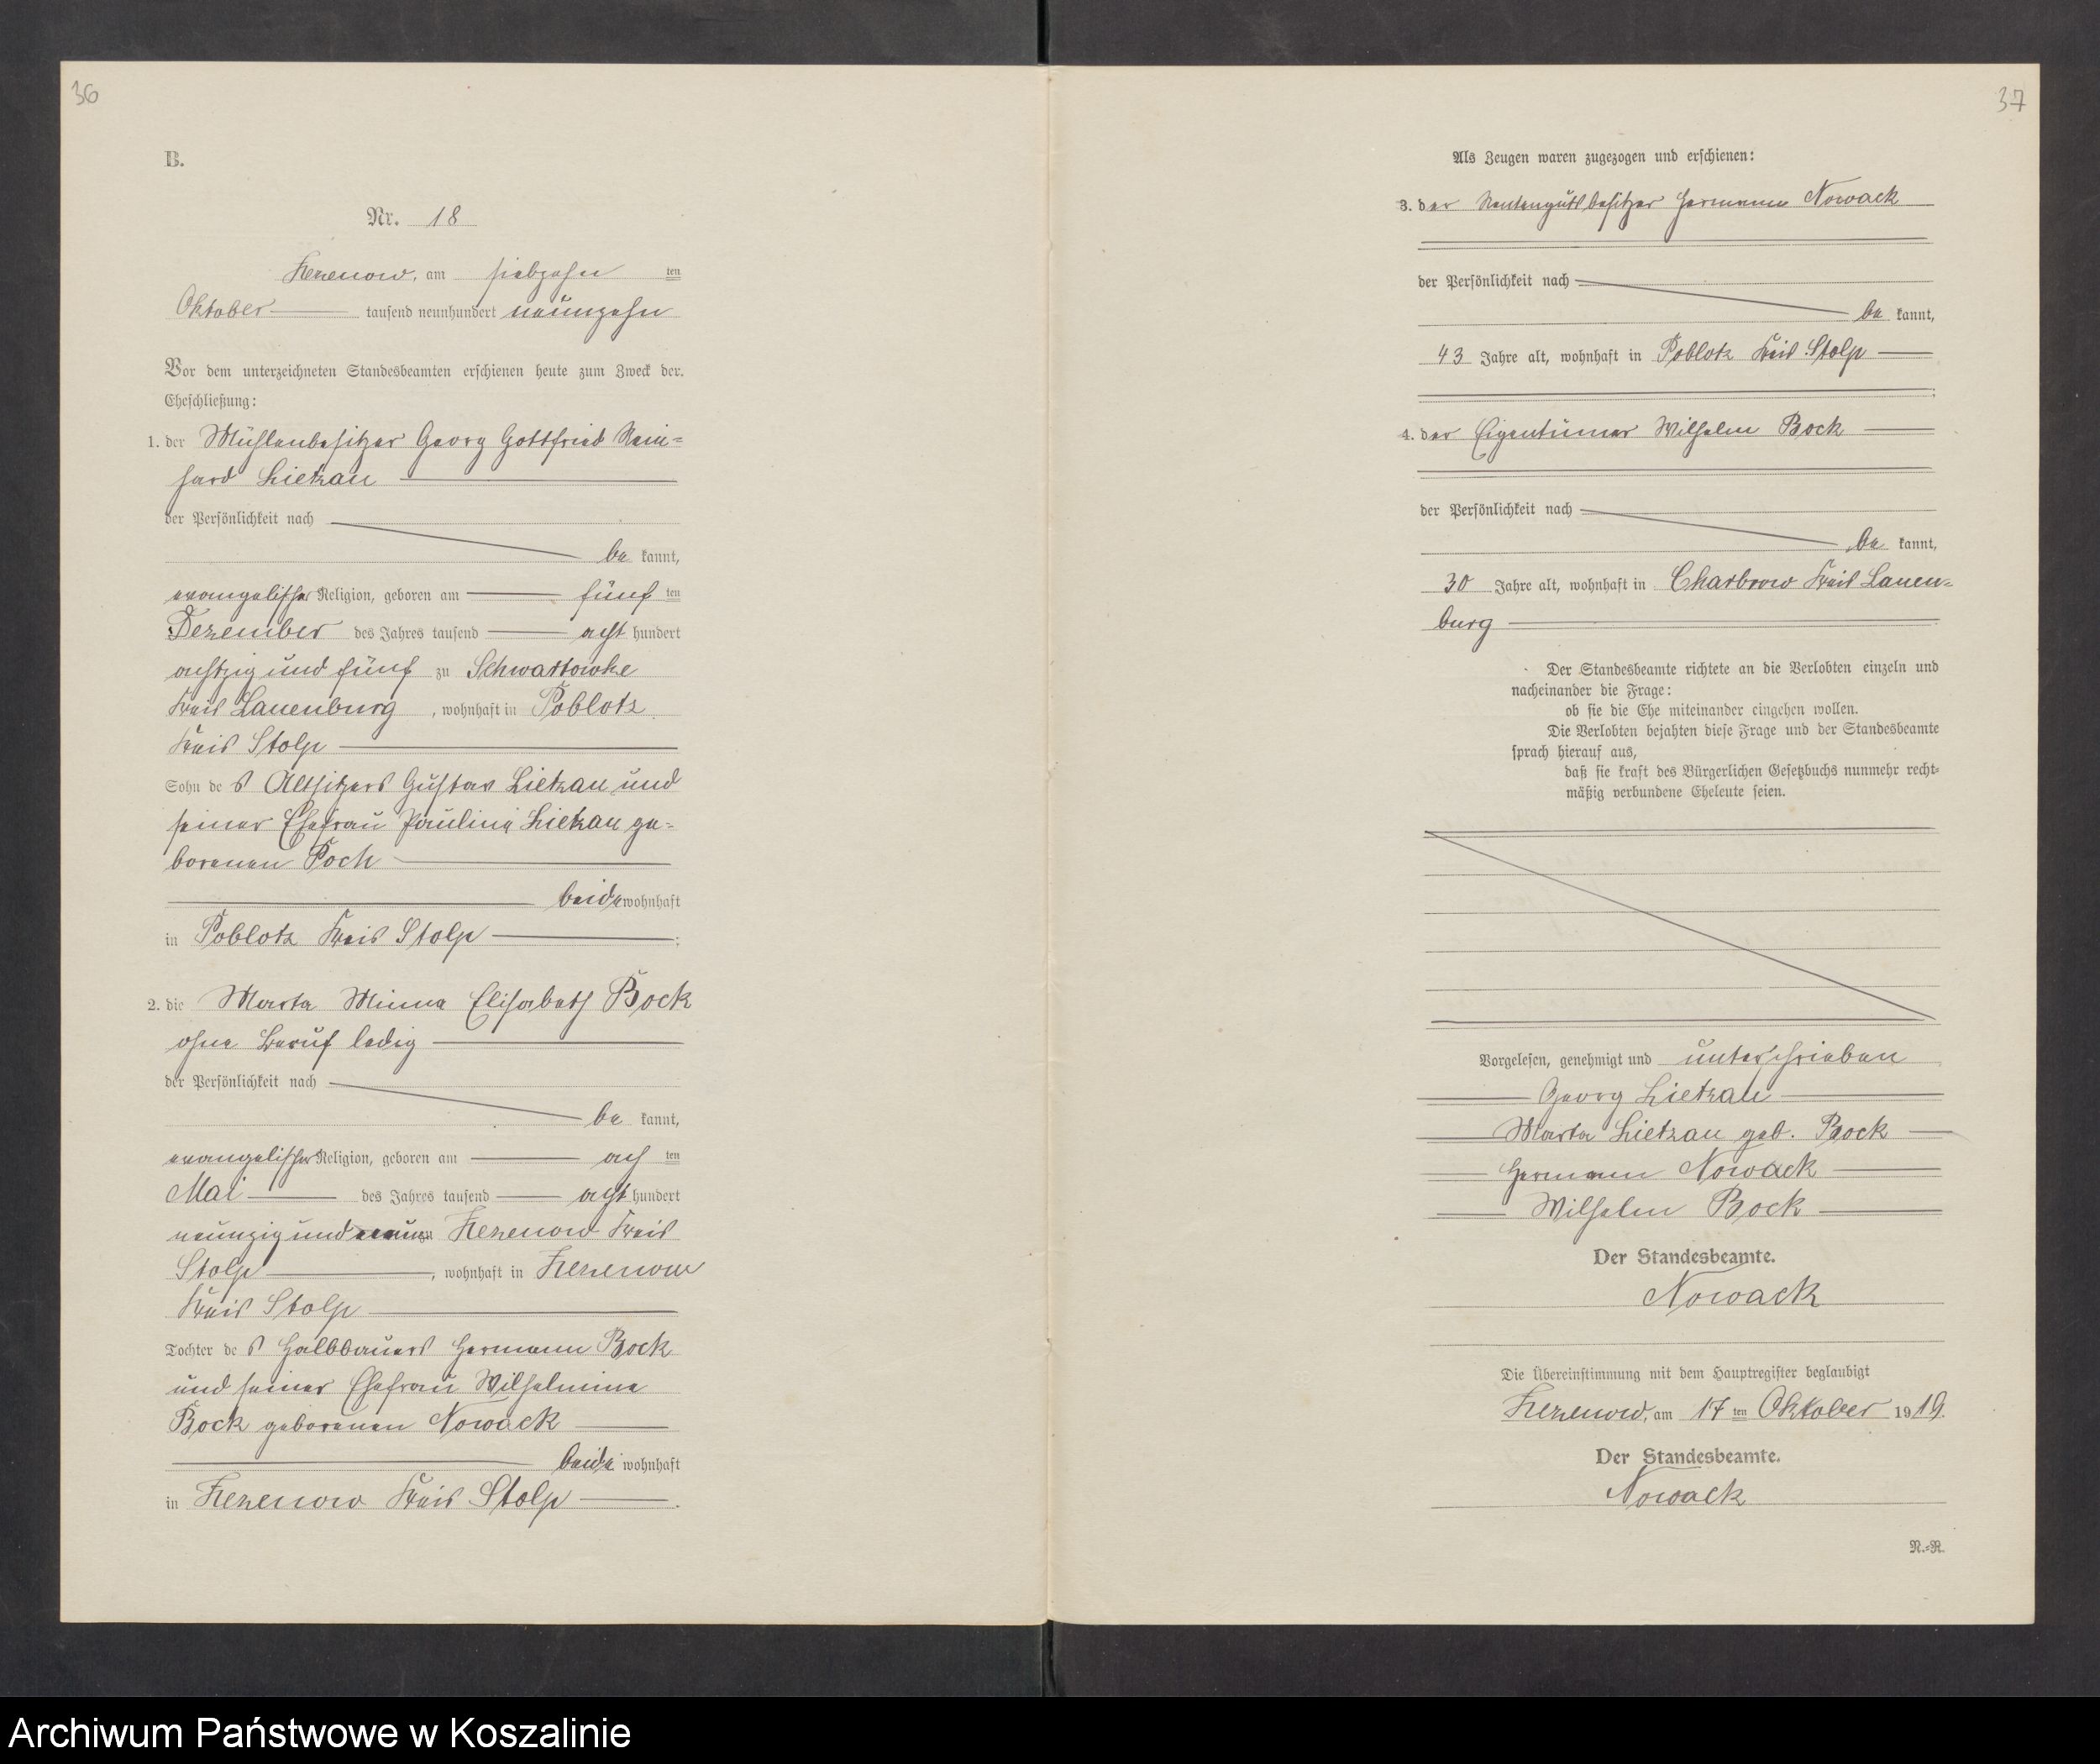 36
B.
Nr. 18
Zezenow, am siebzehn ten
Oktober tausend neunhundert neunzehn
Vor dem unterzeichneten Standesbeamten erschienen heute zum Zweck der
Eheschließung:
1. der Mühlenbesitzer Georg Gottfried Rein=
hard Lietzau
der Persönlichkeit nach
be kannt,
evangelischer Religion, geboren am fünf ten
Dezember des Jahres tausend acht hundert
achtzig und fünf zu Schwartowke
Kreis Lauenburg, wohnhaft in Poblotz
Kreis Stolp
Sohn de s Altsitzers Gustav Lietzau und
seiner Ehefrau Pauline Lietzau ge=
borenen Poch
beide wohnhaft
in Poblotz Kreis Stolp;
2. die Marta Minna Elisabeth Bock
ohne Beruf ledig
der Persönlichkeit nach
be kannt,
evangelischer Religion, geboren am ach ten
Mai des Jahres tausend acht hundert
neunzig und neun zu Zezenow Kreis
Stolp, wohnhaft in Zezenow
Kreis Stolp
Tochter de s Halbbauers Hermann Bock
und seiner Ehefrau Wilhelmine
Bock geborenen Nowack
beide wohnhaft
in Zezenow Kreis Stolp.
37
Als Zeugen waren zugezogen und erschienen:
3. der Rentengutsbesitzer Hermann Nowack
der Persönlichkeit nach
be kannt,
43 Jahre alt, wohnhaft in Poblotz Kreis Stolp
4. der Eigentümer Wilhelm Bock
der Persönlichkeit nach
be kannt,
30 Jahre alt, wohnhaft in Charbrow Kreis Lauen=
burg
Der Standesbeamte richtete an die Verlobten einzeln und
nacheinander die Frage:
ob sie die Ehe miteinander eingehen wollen.
Die Verlobten bejahten diese Frage und der Standesbeamte
sprach hierauf aus,
daß sie kraft des Bürgerlichen Gesetzbuchs nunmehr recht=
mäßig verbundene Eheleute seien.
Vorgelesen, genehmigt und unterschrieben
Georg Lietzau
Marta Lietzau geb. Bock
Hermann Nowack
Wilhelm Bock
Der Standesbeamte.
Nowack
Die Übereinstimmung mit dem Hauptregister beglaubigt
Zezenow, am 17 ten Oktober 1919.
Der Standesbeamte.
Nowack
N.=R.
Archiwum Państwowe w Koszalinie